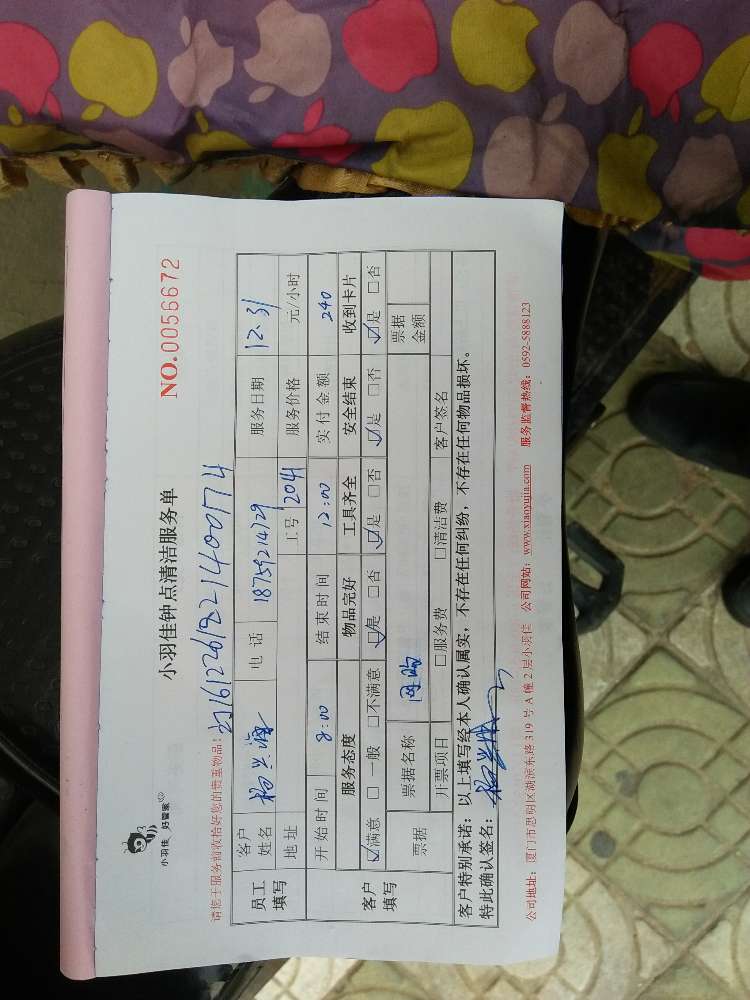 小羽佳 好管家
小羽佳钟点清洁服务单
NO.0056672
请您于服务前收拾好您的贵重物品!
员工填写 客户姓名 电话 18759214729 服务日期 12.31
地址 工号 2041 服务价格 元/小时
开始时间 8:00 结束时间 12:00 实付金额 240
客户填写 服务态度 物品完好 工具齐全 安全结束 收到卡片
☑满意 □一般 □不满意 ☑是 □否 ☑是 □否 ☑是 □否 ☑是 □否
票据 票据名称 网购 票据金额
开票项目 □服务费 □清洁费 客户签名
客户特别承诺:以上填写经本人确认属实,不存在任何纠纷,不存在任何物品损坏。
特此确认签名:
公司地址:厦门市思明区湖滨东路 319 号 A 幢 2 层小羽佳 公司网站:www.xiaoyujia.com 服务监督热线:0592-5888123